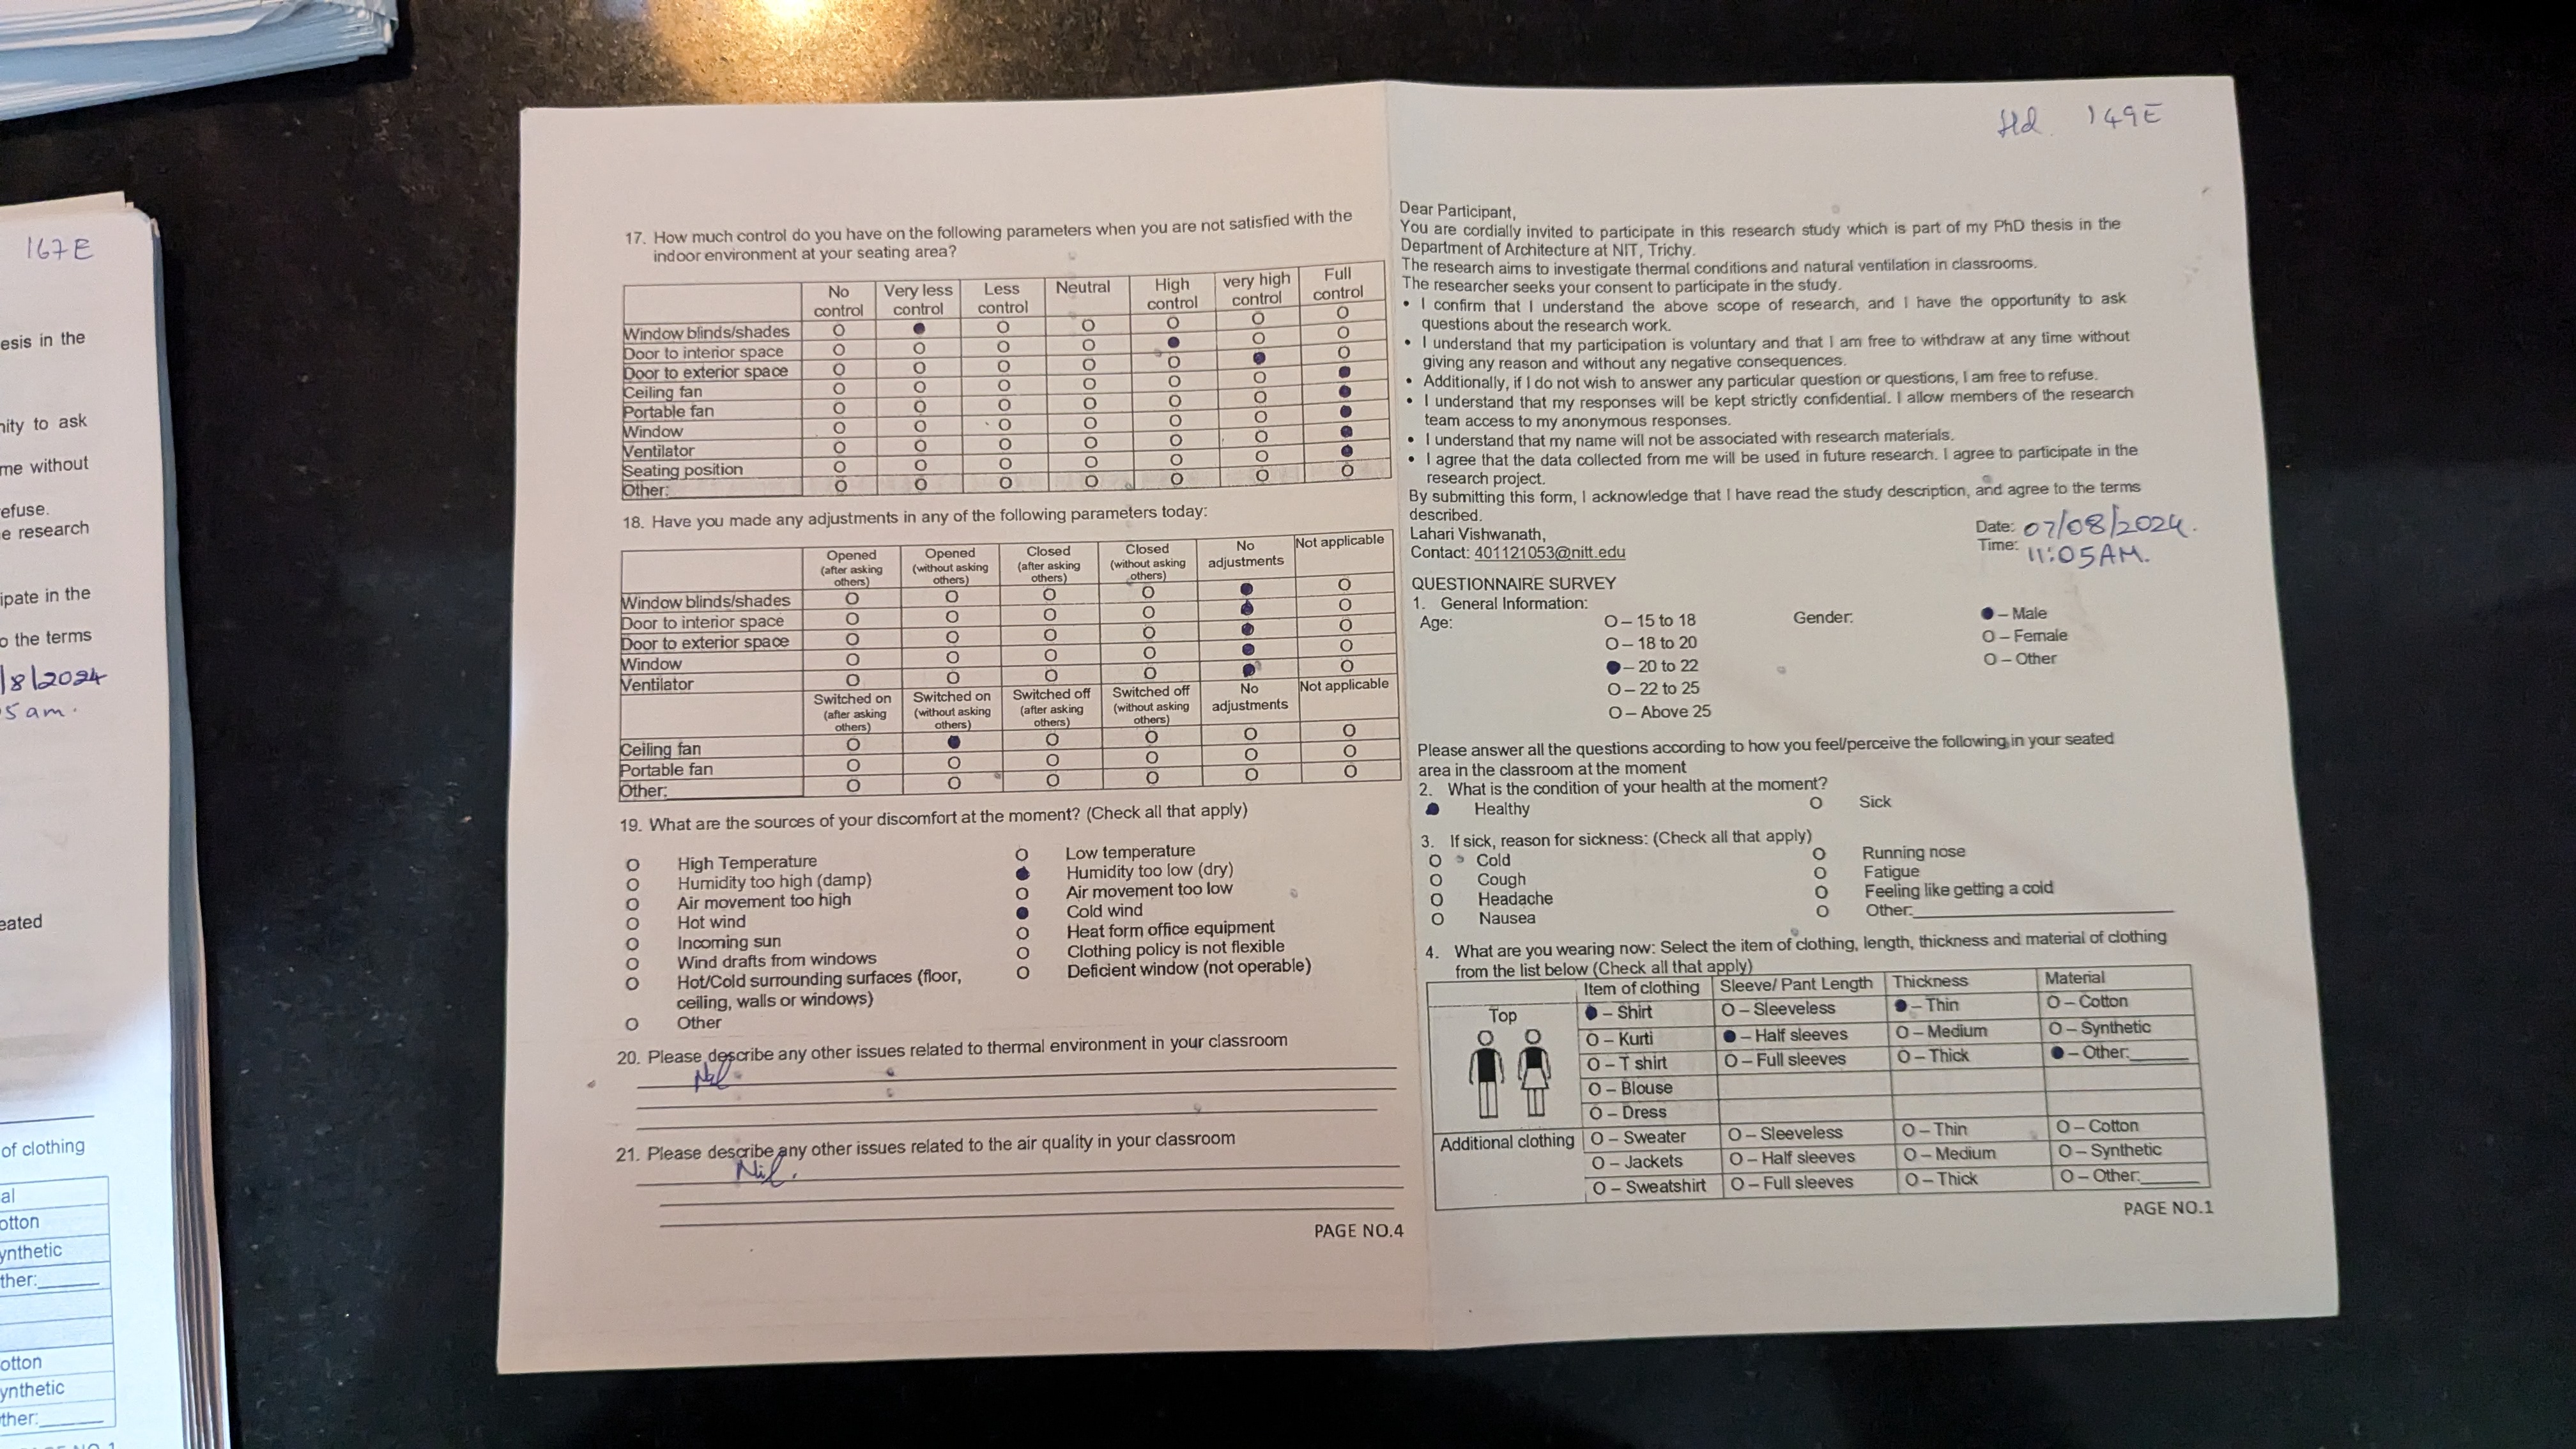 167E
esis in the
nity to ask
me without
efuse.
e research
ipate in the
o the terms
/8/2024
5 am.
eated
of clothing
al
otton
ynthetic
ther:______
otton
ynthetic
ther:______
17. How much control do you have on the following parameters when you are not satisfied with the
indoor environment at your seating area?
No control Very less control Less control Neutral High control very high control Full control
Window blinds/shades O ● O O O O O
Door to interior space O O O O ● O O
Door to exterior space O O O O O ● O
Ceiling fan O O O O O O ●
Portable fan O O O O O O ●
Window O O O O O O ●
Ventilator O O O O O O ●
Seating position O O O O O O ●
Other: O O O O O O O
18. Have you made any adjustments in any of the following parameters today:
Opened (after asking others) Opened (without asking others) Closed (after asking others) Closed (without asking others) No adjustments Not applicable
Window blinds/shades O O O O ● O
Door to interior space O O O O ● O
Door to exterior space O O O O ● O
Window O O O O ● O
Ventilator O O O O ● O
Switched on (after asking others) Switched on (without asking others) Switched off (after asking others) Switched off (without asking others) No adjustments Not applicable
Ceiling fan O ● O O O O
Portable fan O O O O O O
Other: O O O O O O
19. What are the sources of your discomfort at the moment? (Check all that apply)
O High Temperature O Low temperature
O Humidity too high (damp) ● Humidity too low (dry)
O Air movement too high O Air movement too low
O Hot wind ● Cold wind
O Incoming sun O Heat form office equipment
O Wind drafts from windows O Clothing policy is not flexible
O Hot/Cold surrounding surfaces (floor, O Deficient window (not operable)
ceiling, walls or windows)
O Other
20. Please describe any other issues related to thermal environment in your classroom
Nil
21. Please describe any other issues related to the air quality in your classroom
Nil.
PAGE NO.4
149E
Dear Participant,
You are cordially invited to participate in this research study which is part of my PhD thesis in the
Department of Architecture at NIT, Trichy.
The research aims to investigate thermal conditions and natural ventilation in classrooms.
The researcher seeks your consent to participate in the study.
• I confirm that I understand the above scope of research, and I have the opportunity to ask
questions about the research work.
• I understand that my participation is voluntary and that I am free to withdraw at any time without
giving any reason and without any negative consequences.
• Additionally, if I do not wish to answer any particular question or questions, I am free to refuse.
• I understand that my responses will be kept strictly confidential. I allow members of the research
team access to my anonymous responses.
• I understand that my name will not be associated with research materials.
• I agree that the data collected from me will be used in future research. I agree to participate in the
research project.
By submitting this form, I acknowledge that I have read the study description, and agree to the terms
described.
Lahari Vishwanath,
Contact: 401121053@nitt.edu
Date: 07/08/2024.
Time: 11:05AM.
QUESTIONNAIRE SURVEY
1. General Information:
Age: O – 15 to 18 Gender: ● – Male
O – 18 to 20 O – Female
● – 20 to 22 O – Other
O – 22 to 25
O – Above 25
Please answer all the questions according to how you feel/perceive the following in your seated
area in the classroom at the moment
2. What is the condition of your health at the moment?
● Healthy O Sick
3. If sick, reason for sickness: (Check all that apply)
O Cold O Running nose
O Cough O Fatigue
O Headache O Feeling like getting a cold
O Nausea O Other:______
4. What are you wearing now: Select the item of clothing, length, thickness and material of clothing
from the list below (Check all that apply)
Item of clothing Sleeve/ Pant Length Thickness Material
Top ● – Shirt O – Sleeveless ● – Thin O – Cotton
O – Kurti ● – Half sleeves O – Medium O – Synthetic
O – T shirt O – Full sleeves O – Thick ● – Other:______
O – Blouse
O – Dress
Additional clothing O – Sweater O – Sleeveless O – Thin O – Cotton
O – Jackets O – Half sleeves O – Medium O – Synthetic
O – Sweatshirt O – Full sleeves O – Thick O – Other:______
PAGE NO.1